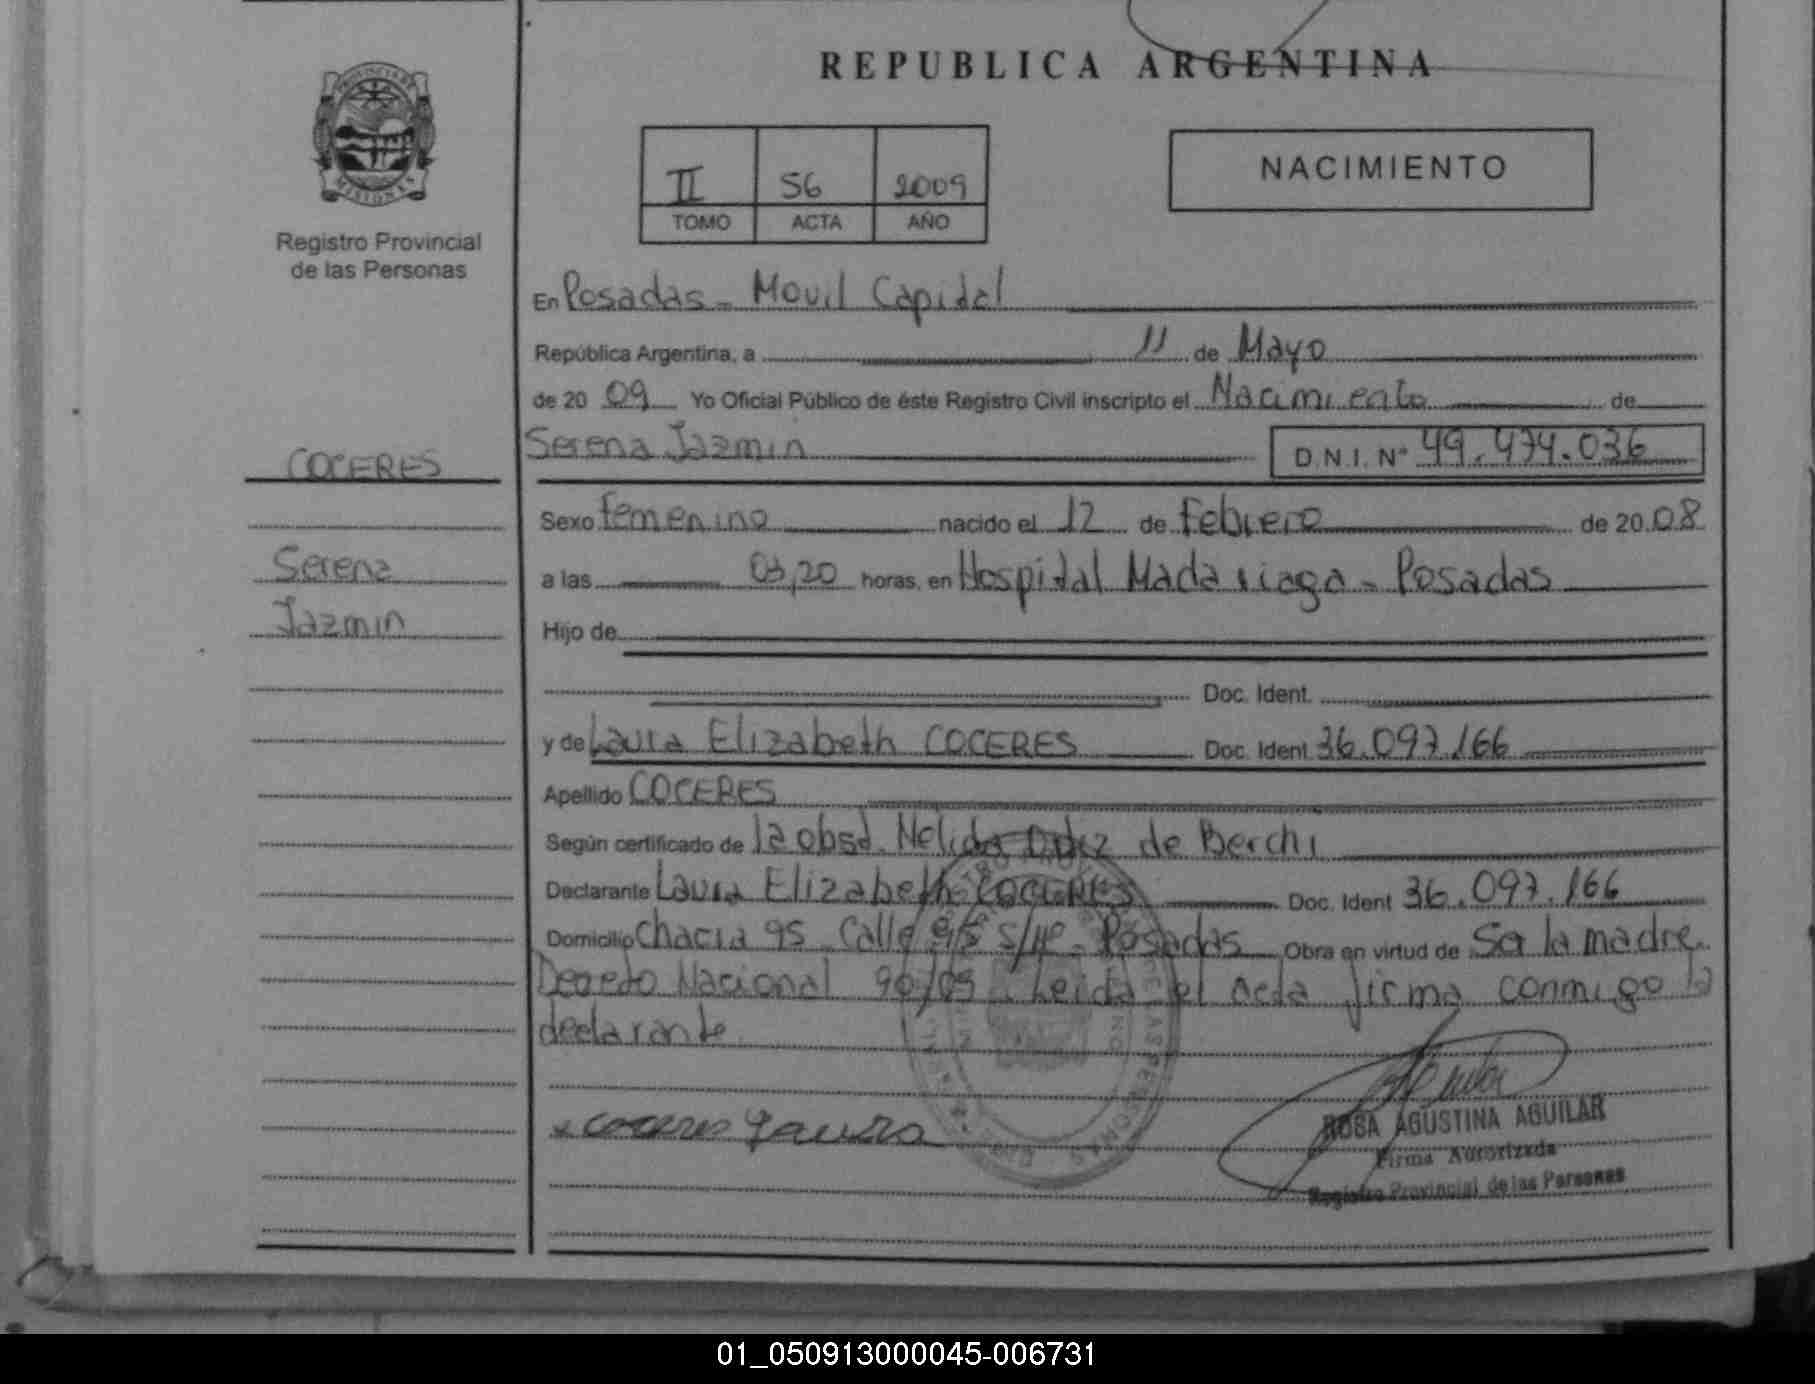 REPUBLICA ARGENTINA
PROVINCIA DE
MISIONES
Registro Provincial
de las Personas
II 56 2009
TOMO ACTA AÑO
NACIMIENTO
En Posadas - Movil Capital
República Argentina, a 11 de Mayo
de 20 09 Yo Oficial Público de éste Registro Civil inscripto el Nacimiento de
COCERES
Serena Jazmin D.N.I. Nº 49.474.036
Sexo femenino nacido el 12 de febrero de 20 08
Serena
a las 03,20 horas, en Hospital Madariaga - Posadas
Jazmin
Hijo de
Doc. Ident.
y de Laura Elizabeth COCERES Doc. Ident 36.097.166
Apellido COCERES
Según certificado de la obst. Nelida de Berchi
Declarante Laura Elizabeth COCERES Doc. Ident 36.097.166
Domicilio Chacra 95 Calle s/nº - Posadas Obra en virtud de Ser la madre
Decreto Nacional 90/09 . Leida el Acta firma conmigo la
declarante
x coceres Laura
ROSA AGUSTINA AGUILAR
Firma Autorizada
Registro Provincial de las Personas
01_050913000045-006731